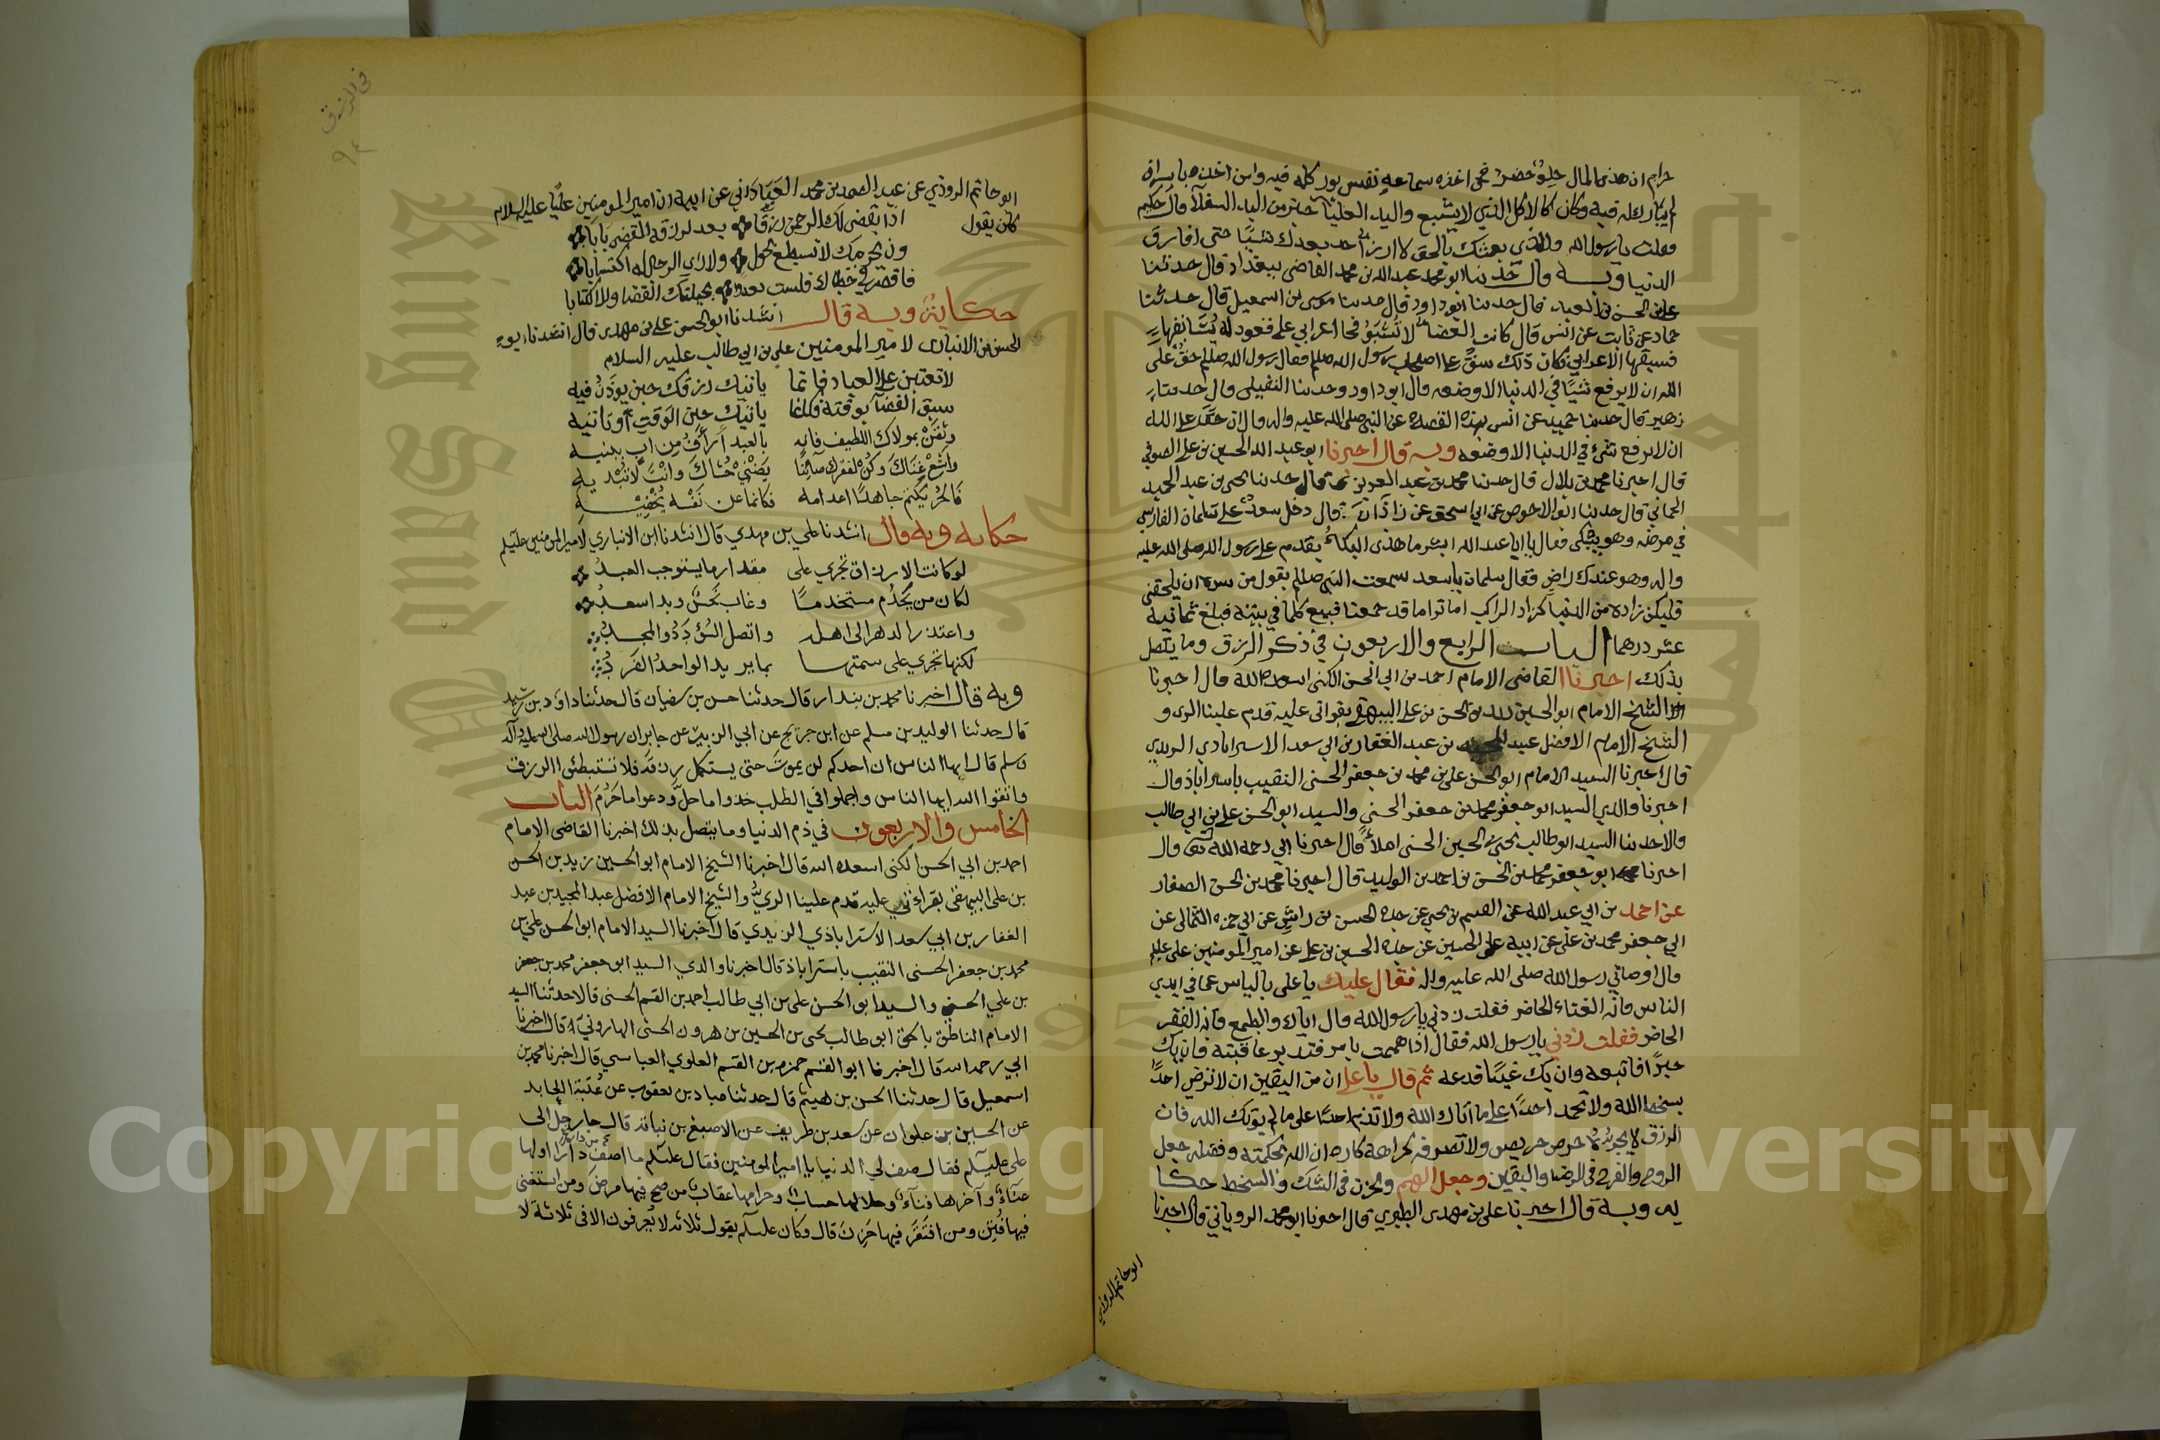 حرام ان هذا المال حلوة خضرة فمن اخذه سماعه نفس بورك له فيه ومن اخذه باسراف
لم يبارك له فيه وكان كالاكل الذي لا يشبع واليد العليا خير من اليد السفلى قال حكيم
فقلت يا رسول الله والذي بعثك بالحق لا ارزأ احد بعدك شيئًا حتى افارق
الدنيا وبه قال حدثنا ابو محمد عبد الله بن محمد القاضي ببغداد قال حدثنا
علي بن الحسن بن العبد قال حدثنا ابو داود قال حدثنا موسى بن اسمعيل قال حدثنا
حماد عن ثابت عن انس قال كانت العضباء لا تسبق فجا اعرابي على قعود له يسابقها
فسبقها الاعرابي فكان ذلك شق على اصحاب رسول الله صلعم فقال رسول الله صلعم حق على
الله ان لا يرفع شيئًا في الدنيا الا وضعه قال ابو داود وحدثنا النفيلي قال حدثنا
زهير قال حدثنا حميد عن انس بهذه القصة عن النبي صلى الله عليه واله قال ان حقًا على الله
ان لا يرفع شيء في الدنيا الا وضعه وبه قال اخبرنا ابو عبد الله الحسين بن علي الصوفي
قال اخبرنا محمد بن بلال قال حدثنا محمد بن عبد العزيز قال حدثنا يحيى بن عبد الحميد
الحماني قال حدثنا ابو الاحوص عن ابي اسحق عن زاذان قال دخل سعد على سلمان الفارسي
في مرضه وهو يبكي فقال يا ابا عبد الله ابشر ما هذى البكاء يقدم على رسول الله صلى الله عليه
واله وهو عندك راض فقال سلمان يا سعد سمعت النبي صلعم يقول من سره ان يلحقني
فليكن زاده من الدنيا كزاد الراكب اما تراما قد جمعنا فبيع كلما في بيته فبلغ ثمانية
عشر درهما الباب الرابع والاربعون في ذكر الرزق وما يتصل
بذلك اخبرنا القاضي الامام احمد بن ابي الحسن الكني اسعده الله قال اخبرنا
الشيخ الامام ابو الحسين زيد بن الحسن بن علي البيهقي بقراتي عليه قدم علينا الري و
الشيخ الامام الافضل عبد المجيد بن عبد الغفار بن ابي سعد الاسترابادي الزيدي
قال اخبرنا السيد الامام ابو الحسن علي بن محمد بن جعفر الحسني النقيب باستراباذ قال
اخبرنا والدي السيد ابو جعفر محمد بن جعفر الحسني والسيد ابو الحسن علي بن ابي طالب
قالا حدثنا السيد ابو طالب يحيى بن الحسين الحسني املاءً قال اخبرنا ابي رحمه الله قال
اخبرنا ابو جعفر محمد بن الحسن بن احمد بن الوليد قال اخبرنا محمد بن الحسن الصفار
عن احمد بن ابي عبد الله عن القسم بن يحيى عن جده الحسن بن راشد عن ابي حمزه الثمالي عن
ابي جعفر محمد بن علي عن ابيه علي بن الحسين عن جده الحسين بن علي عن امير المومنين علي عليه
قال اوصاني رسول الله صلى الله عليه واله فقال عليك يا علي بالياس عما في ايدي
الناس فانه الغناء الحاضر فقلت زدني يا رسول الله قال اياك والطمع فانه الفقر
الحاضر فقلت زدني يا رسول الله فقال اذا هممت بامر فتدبر عاقبته فان يك
خيرًا فاتبعه وان يك غيًا فدعه ثم قال يا علي ان من اليقين ان لا ترضي احدًا
بسخط الله ولا تحمد احدًا على ما اتاك الله ولا تذم احدًا على ما لم يؤتك الله فان
الرزق لا يجره حرص حريص ولا تصرفه كراهة كاره ان الله بحكمته وفضله جعل
الروح والفرح في الرضا واليقين وجعل الهم والحزن في الشك والسخط حكا
يه وبه قال اخبرنا علي بن مهدي الطبري قال اخبرنا ابو محمد الروياني قال اخبرنا
ابو حاتم الروذي
في الرزق
٩٤
ابو حاتم الروذي عن عبد الصمد بن محمد العباداني عن ابيه ان امير المومنين عليًا عليه السلام
كان يقول اذا يقضي لك الرحمن رزقًا يعد لرزقه المقضي بابا
ون يحرمك لا تسطع بحول ولا راي الرجال له اكتسابا
فاقصر في خطاك فلست تعدو بحيلتك القضا ولا الكتابا
حكاية وبه قال انشدنا ابو الحسن علي بن مهدي قال انشدنا ابو
الحسن بن الانباري لامير المومنين علي بن ابي طالب عليه السلام
لا تعتبن على العباد فانما ياتيك رزقك حين يوذن فيه
سبق القضآ بوقته فكانما ياتيك حين الوقت او تاتيه
وثقن بمولاك اللطيف فانه بالعبد أرأف من اب ببنيه
وأشع غناك وكن لفقرك صائنًا يضني حشاك وانت لا تبديه
فالحر يكتم جاهدًا اعدامه فكانما عن نفسه يخفيه
حكايه وبه قال انشدنا علي بن مهدي قال انشدنا ابن الانباري لامير المومنين عليلم
لو كانت الارزاق تجري على مقدار ما يستوجب العبد
لكان من يخدم مستخدمًا وغاب نحس وبدا سعد
واعتذر الدهر الى اهله واتصل السؤدد والمجد
لكنها تجري على سمتها بما يريد الواحد الفرد
وبه قال اخبرنا محمد بن بندار قال حدثنا حسن بن سفيان قال حدثنا داود بن رشيد
قال حدثنا الوليد بن مسلم عن ابن جريج عن ابي الزبير عن جابر ان رسول الله صلى الله عليه وآله
وسلم قال ايها الناس ان احدكم لن يموت حتى يستكمل رزقه فلا تستبطئوا الرزق
واتقوا الله ايها الناس واجملوا في الطلب خذوا ما حل ودعوا ما حرم الباب
الخامس والاربعون في ذم الدنيا وما يتصل بذلك اخبرنا القاضي الامام
احمد بن ابي الحسن الكني اسعده الله قال اخبرنا الشيخ الامام ابو الحسين زيد بن الحسن
بن علي البيهقي بقراءتي عليه قدم علينا الري والشيخ الامام الافضل عبد المجيد بن عبد
الغفار بن ابي سعد الاستراباذي الزيدي قال اخبرنا السيد الامام ابو الحسن علي بن
محمد بن جعفر الحسني النقيب باستراباذ قال اخبرنا والدي السيد ابو جعفر محمد بن جعفر
بن علي الحسني والسيد ابو الحسن علي بن ابي طالب احمد بن القسم الحسني قالا حدثنا السيد
الامام الناطق بالحق ابو طالب يحيى بن الحسين بن هرون الحسني الهاروني قال اخبرنا
ابي رحمه الله قال اخبرنا ابو القسم حمزه بن القسم العلوي العباسي قال اخبرنا محمد بن
اسمعيل قال حدثنا الحسن بن هيثم قال حدثنا عباد بن يعقوب عن عتبة العابد
عن الحسين بن علوان عن سعد بن طريف عن الاصبغ بن نباته قال جا رجل الى
علي عليلم فقال صف لي الدنيا يا امير المومنين فقال عليلم ما اصف من دار اولها
عناء وآخرها فناء وحلالها حساب وحرامها عقاب من صح فيها مرض ومن استغنى
فيها فتن ومن افتقر فيها حزن قال وكان عليلم يقول ثلاثه لا يعرفون الا في ثلاثة لا
King Saud University
جامعة الملك سعود
1957
Copyright © King Saud University